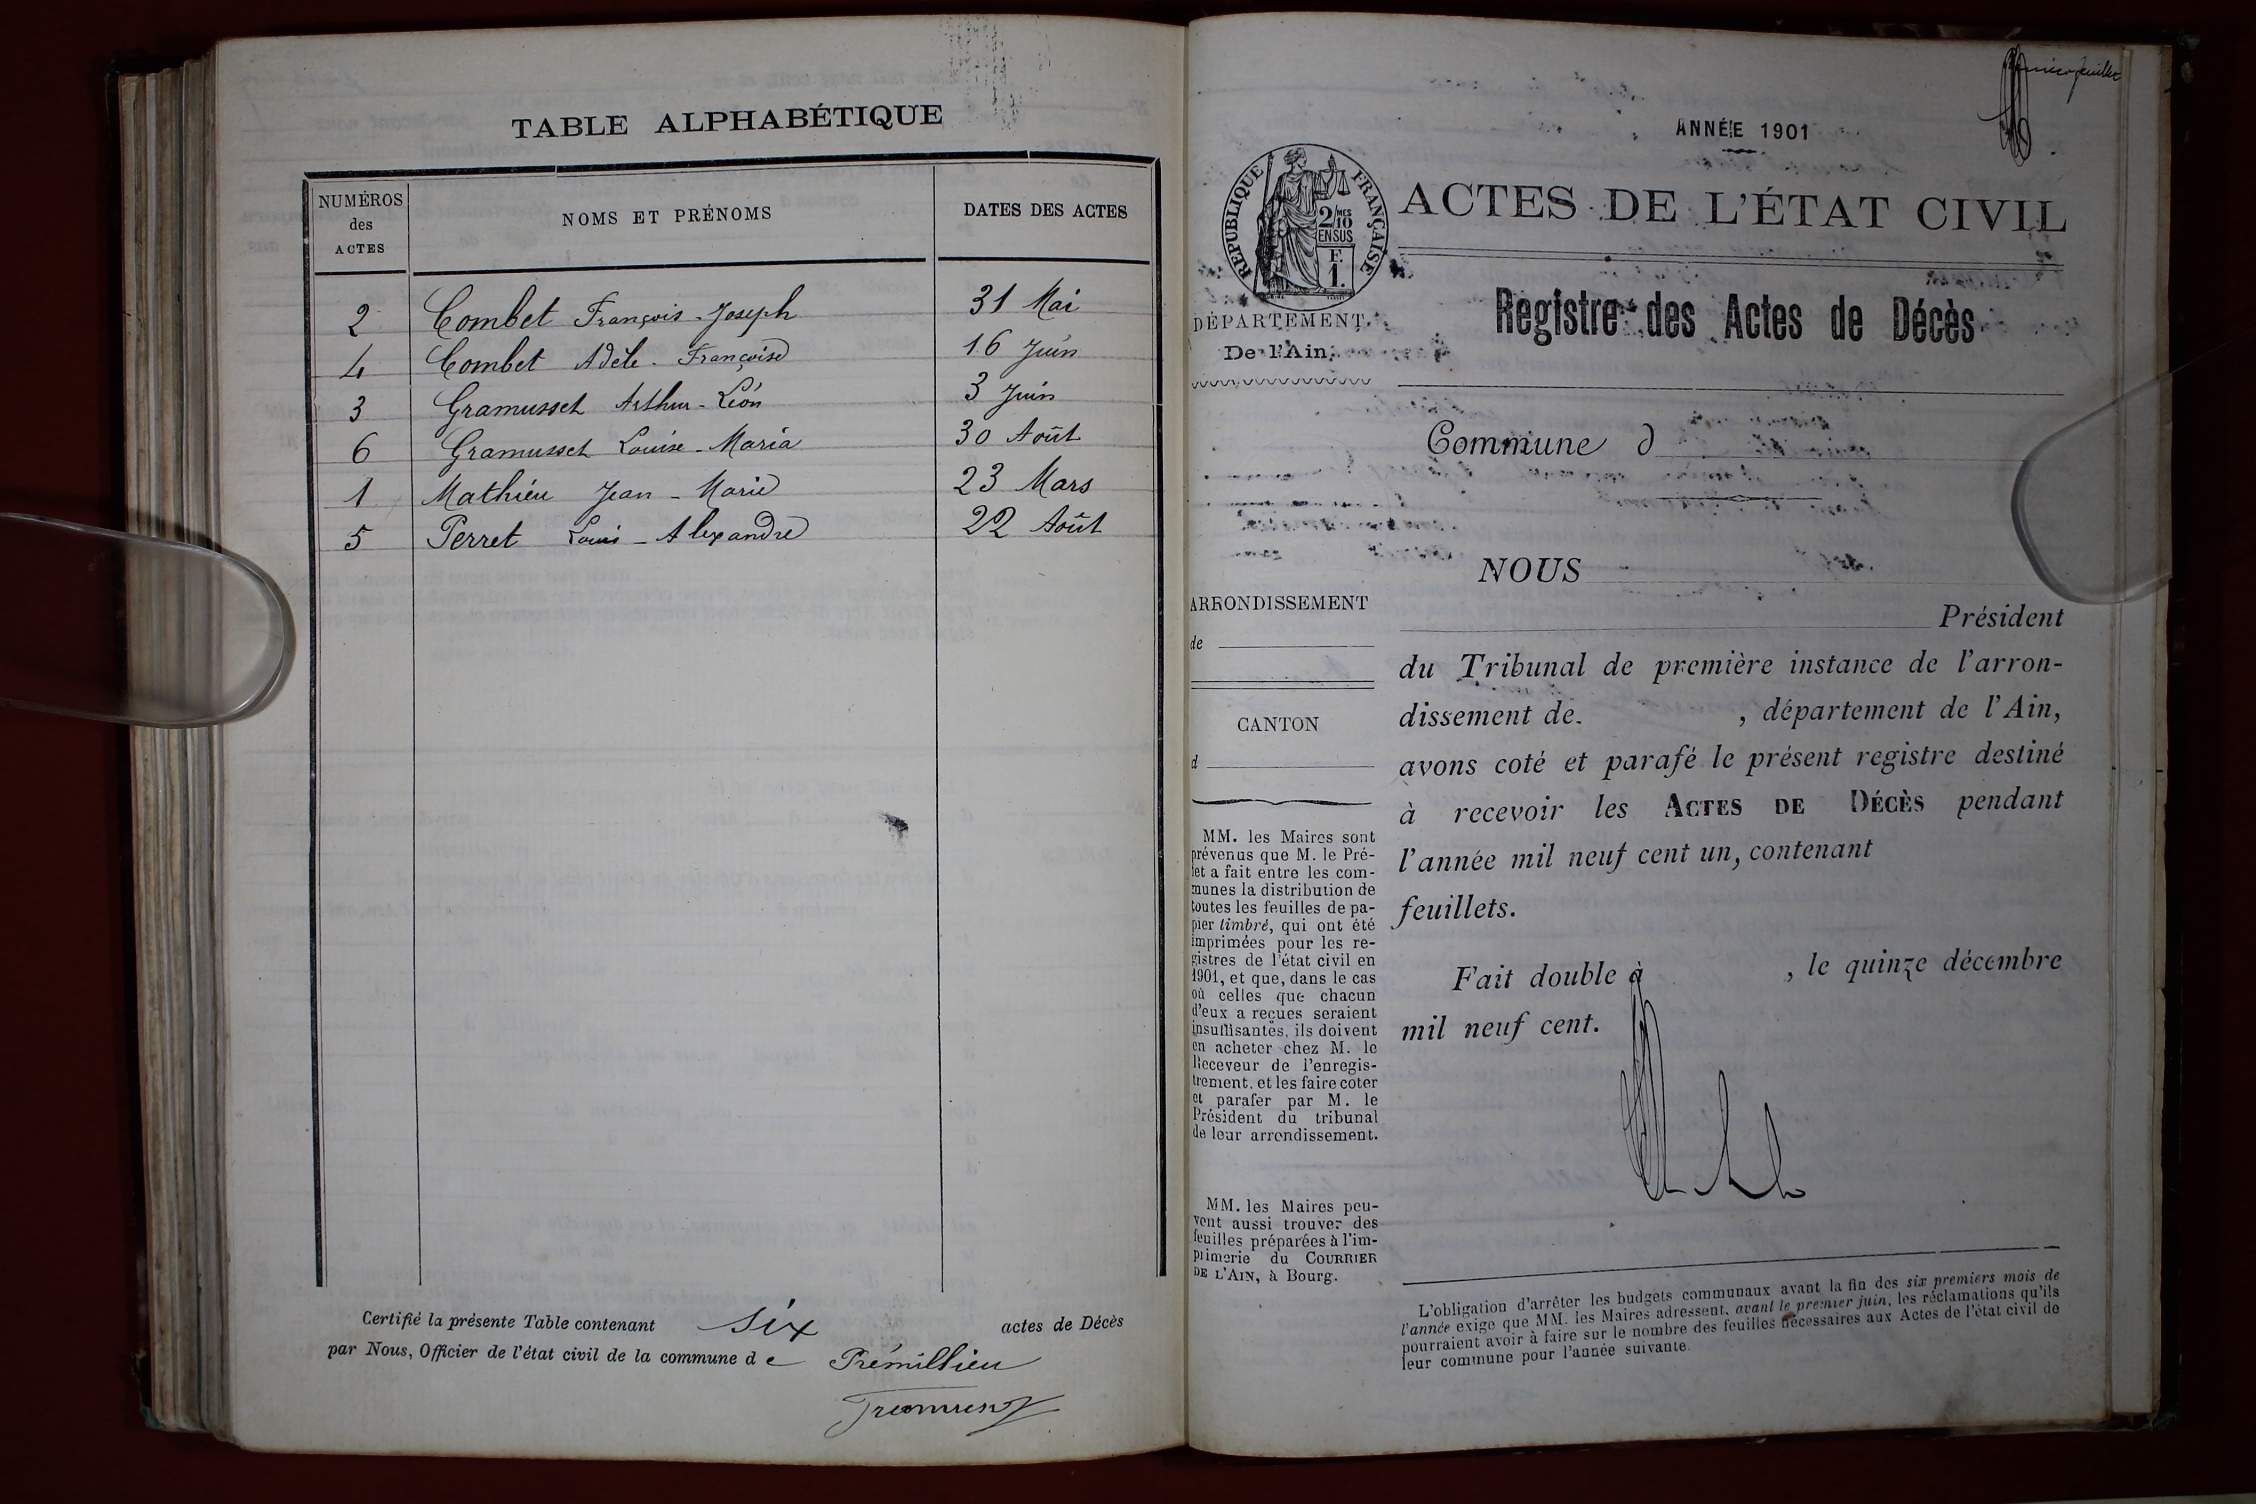 TABLE ALPHABÉTIQUE
NUMÉROS
des
ACTES
NOMS ET PRÉNOMS
DATES DES ACTES
2 Combet François-Joseph 31 Mai
4 Combet Adèle-Françoise 16 Juin
3 Gramusset Arthur-Léon 3 Juin
6 Gramusset Louise-Maria 30 Août
1 Mathieu Jean-Marie 23 Mars
5 Perret Louis-Alexandre 22 Août
Certifié la présente Table contenant six actes de Décès
par Nous, Officier de l'état civil de la commune de Prémillieu
feuillet
ANNÉE 1901
RÉPUBLIQUE FRANÇAISE
2/10
MES
EN SUS
F.
1.
ACTES DE L'ÉTAT CIVIL
DÉPARTEMENT
De l'Ain
Registre des Actes de Décès
Commune d
ARRONDISSEMENT
de
CANTON
d
MM. les Maires sont
prévenus que M. le Pré-
fet a fait entre les com-
munes la distribution de
toutes les feuilles de pa-
pier timbré, qui ont été
imprimées pour les re-
gistres de l'état civil en
1901, et que, dans le cas
où celles que chacun
d'eux a reçues seraient
insuffisantes, ils doivent
en acheter chez M. le
Receveur de l'enregis-
trement, et les faire coter
et parafer par M. le
Président du tribunal
de leur arrondissement.
MM. les Maires peu-
vent aussi trouver des
feuilles préparées à l'im-
primerie du COURRIER
DE L'AIN, à Bourg.
NOUS
Président
du Tribunal de première instance de l'arron-
dissement de , département de l'Ain,
avons coté et parafé le présent registre destiné
à recevoir les ACTES DE DÉCÈS pendant
l'année mil neuf cent un, contenant
feuillets.
Fait double à , le quinze décembre
mil neuf cent.
L'obligation d'arrêter les budgets communaux avant la fin des six premiers mois de
l'année exige que MM. les Maires adressent, avant le premier juin, les réclamations qu'ils
pourraient avoir à faire sur le nombre des feuilles nécessaires aux Actes de l'état civil de
leur commune pour l'année suivante.